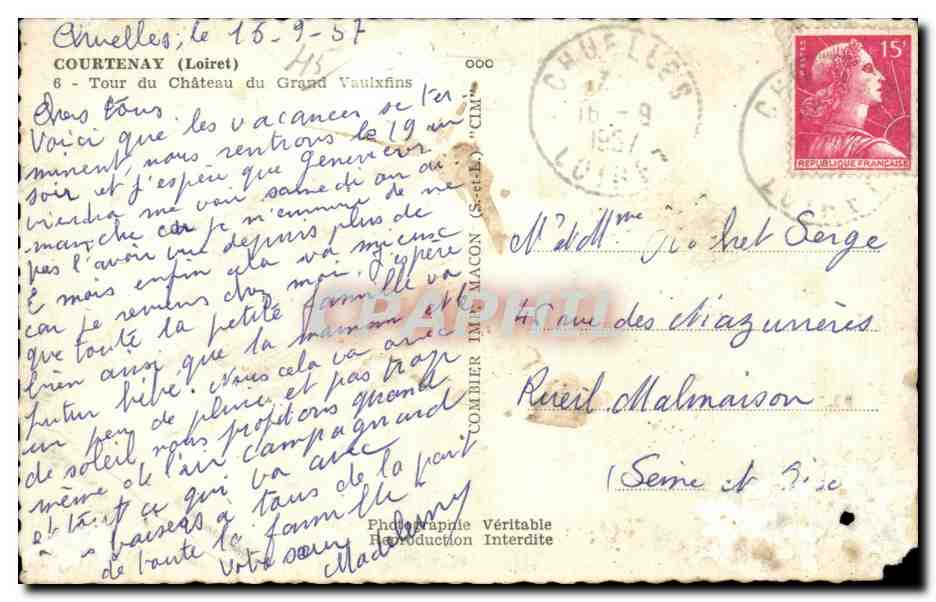 Chuelles, le 15-9-57
COURTENAY (Loiret)
45
6 - Tour du Château du Grand Vaulxfins
Chers tous
Voici que les vacances se ter
minent, nous rentrons le 19 au
soir et j'espère que Geneviève
viendra me voir samedi ou di
manche car je m'ennuie de ne
pas l'avoir vue depuis plus de
2 mois enfin cela va mieux
car je reviens chez moi. J'espère
que toute la petite famille va
bien ainsi que la maman et le
futur bébé. Nous cela va avec
un peu de pluie et pas trop
de soleil nous profitons quand
même de l'air campagnard
et tout ce qui va avec
baisers à tous de la part
de toute la famille
Votre sœur
Madeleine
COMBIER IMP. MACON (S.-et-L.) "CIM"
Photographie Véritable
Reproduction Interdite
CHUELLES
16 - 9
1957
LOIRET
POSTES
15F
REPUBLIQUE FRANÇAISE
Mr et Mme Serge
rue des Mazurières
Rueil Malmaison
(Seine et Oise